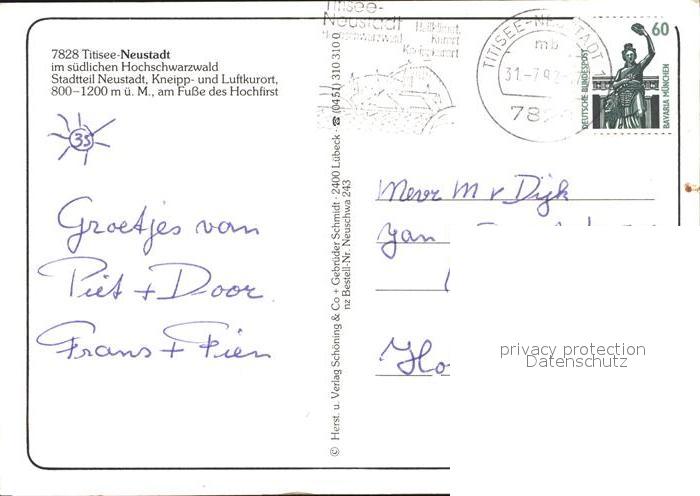 7828 Titisee-Neustadt
im südlichen Hochschwarzwald
Stadtteil Neustadt, Kneipp- und Luftkurort,
800–1200 m ü. M., am Fuße des Hochfirst
35
Groetjes van
Piet + Door
Frans + Pien
© Herst. u. Verlag Schöning & Co + Gebrüder Schmidt · 2400 Lübeck · ☎ (0451) 310 310 0
nz Bestell-Nr. Neuschwa 243
Titisee-
Neustadt
Heilklimat.
Kurort
Hochschwarzwald
Kneippkurort
TITISEE-NEUSTADT 1
mb
31-7.92
782
60
DEUTSCHE BUNDESPOST
BAVARIA MÜNCHEN
Mevr M v Dijk
Jan
Ho
privacy protection
Datenschutz